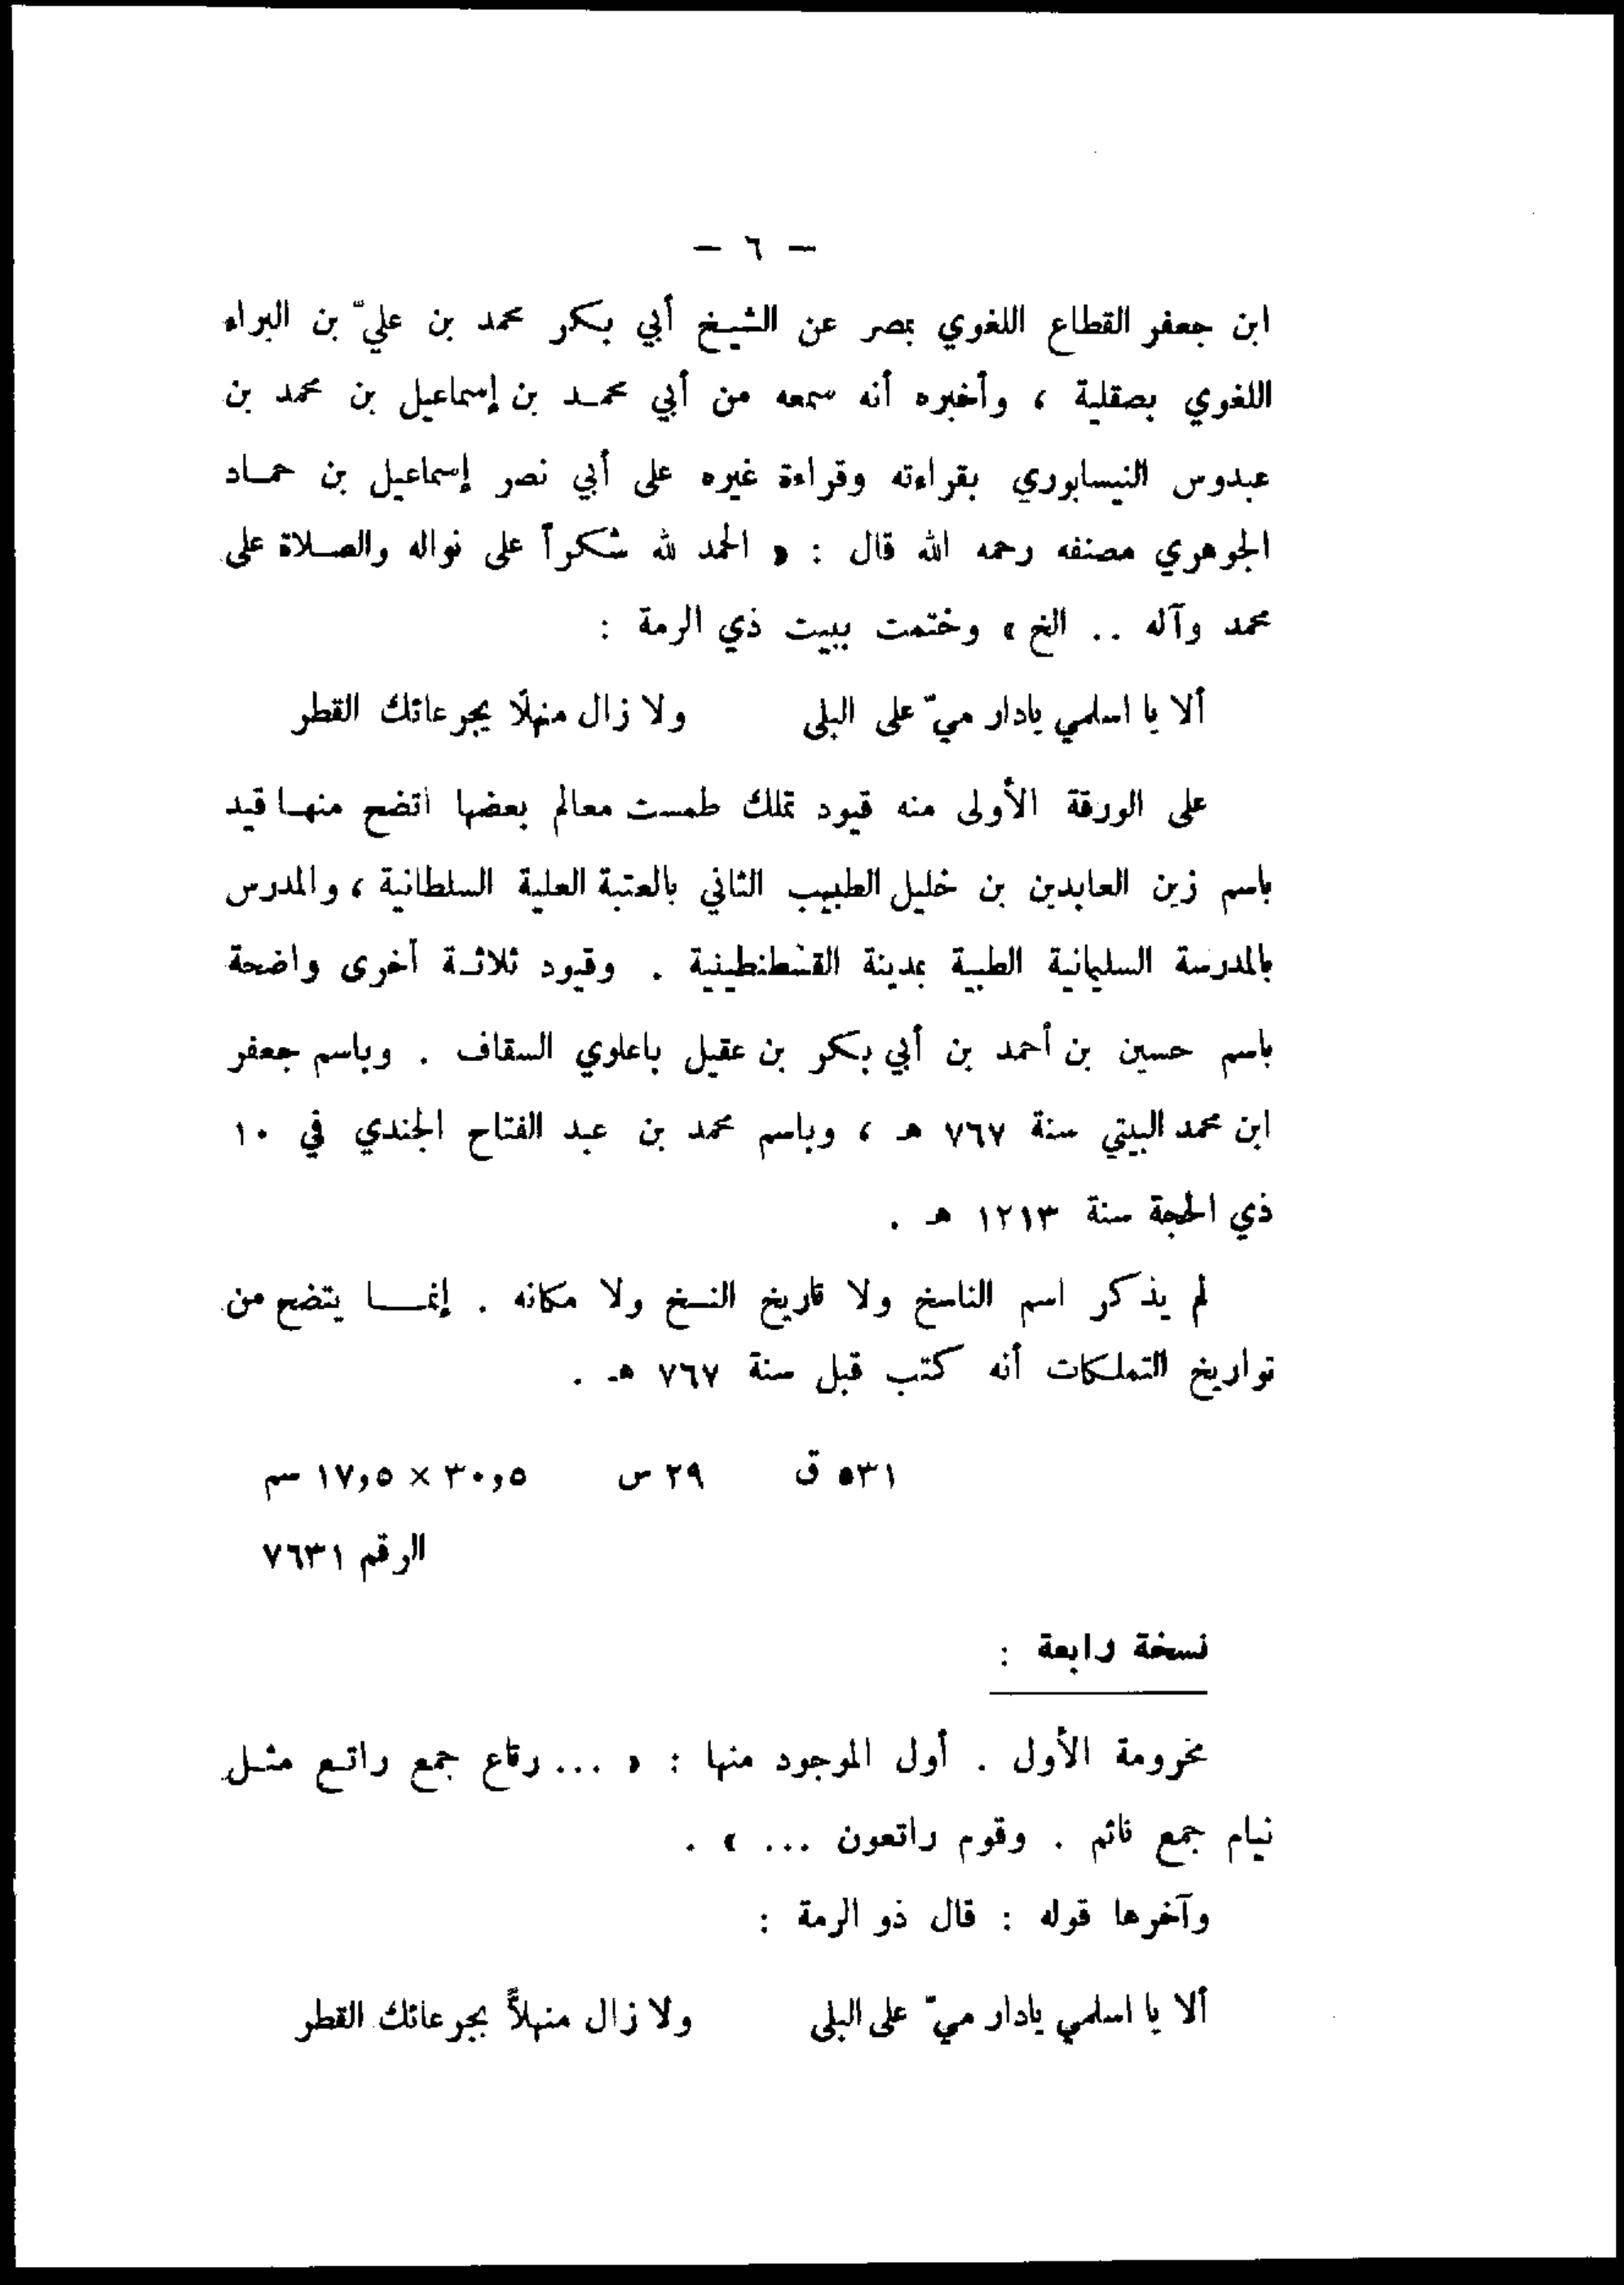 — ٦ —
ابن جعفر القطاع اللغوي بمصر عن الشيخ أبي بكر محمد بن عليّ بن البراء
اللغوي بصقلية ، وأخبره أنه سمعه من أبي محمد بن إسماعيل بن محمد بن
عبدوس النيسابوري بقراءته وقراءة غيره على أبي نصر إسماعيل بن حماد
الجوهري مصنفه رحمه الله قال : « الحمد لله شكراً على نواله والصلاة على
محمد وآله .. الخ » وختمت ببيت ذي الرمة :
ألا يا اسلمي يادار ميّ على البلى ولا زال منهلًا بجرعائك القطر
على الورقة الأولى منه قيود تملك طمست معالم بعضها اتضح منها قيد
باسم زين العابدين بن خليل الطبيب الثاني بالعتبة العلية السلطانية ، والمدرس
بالمدرسة السليمانية الطبية بمدينة القسطنطينية . وقيود ثلاثة أخرى واضحة
باسم حسين بن أحمد بن أبي بكر بن عقيل باعلوي السقاف . وباسم جعفر
ابن محمد البيتي سنة ٧٦٧ هـ ، وباسم محمد بن عبد الفتاح الجندي في ١٠
ذي الحجة سنة ١٢١٣ هـ .
لم يذكر اسم الناسخ ولا تاريخ النسخ ولا مكانه . إنما يتضح من
تواريخ التملكات أنه كتب قبل سنة ٧٦٧ هـ .
٥٣١ ق ٢٩ س ٣٠,٥ × ١٧,٥ سم
الرقم ٧٦٣١
نسخة رابعة :
مخرومة الأول . أول الموجود منها : « ... رتاع جمع راتع مثل
نيام جمع نائم . وقوم راتعون ... » .
وآخرها قوله : قال ذو الرمة :
ألا يا اسلمي يادار ميّ على البلى ولا زال منهلاًّ بجرعائك القطر